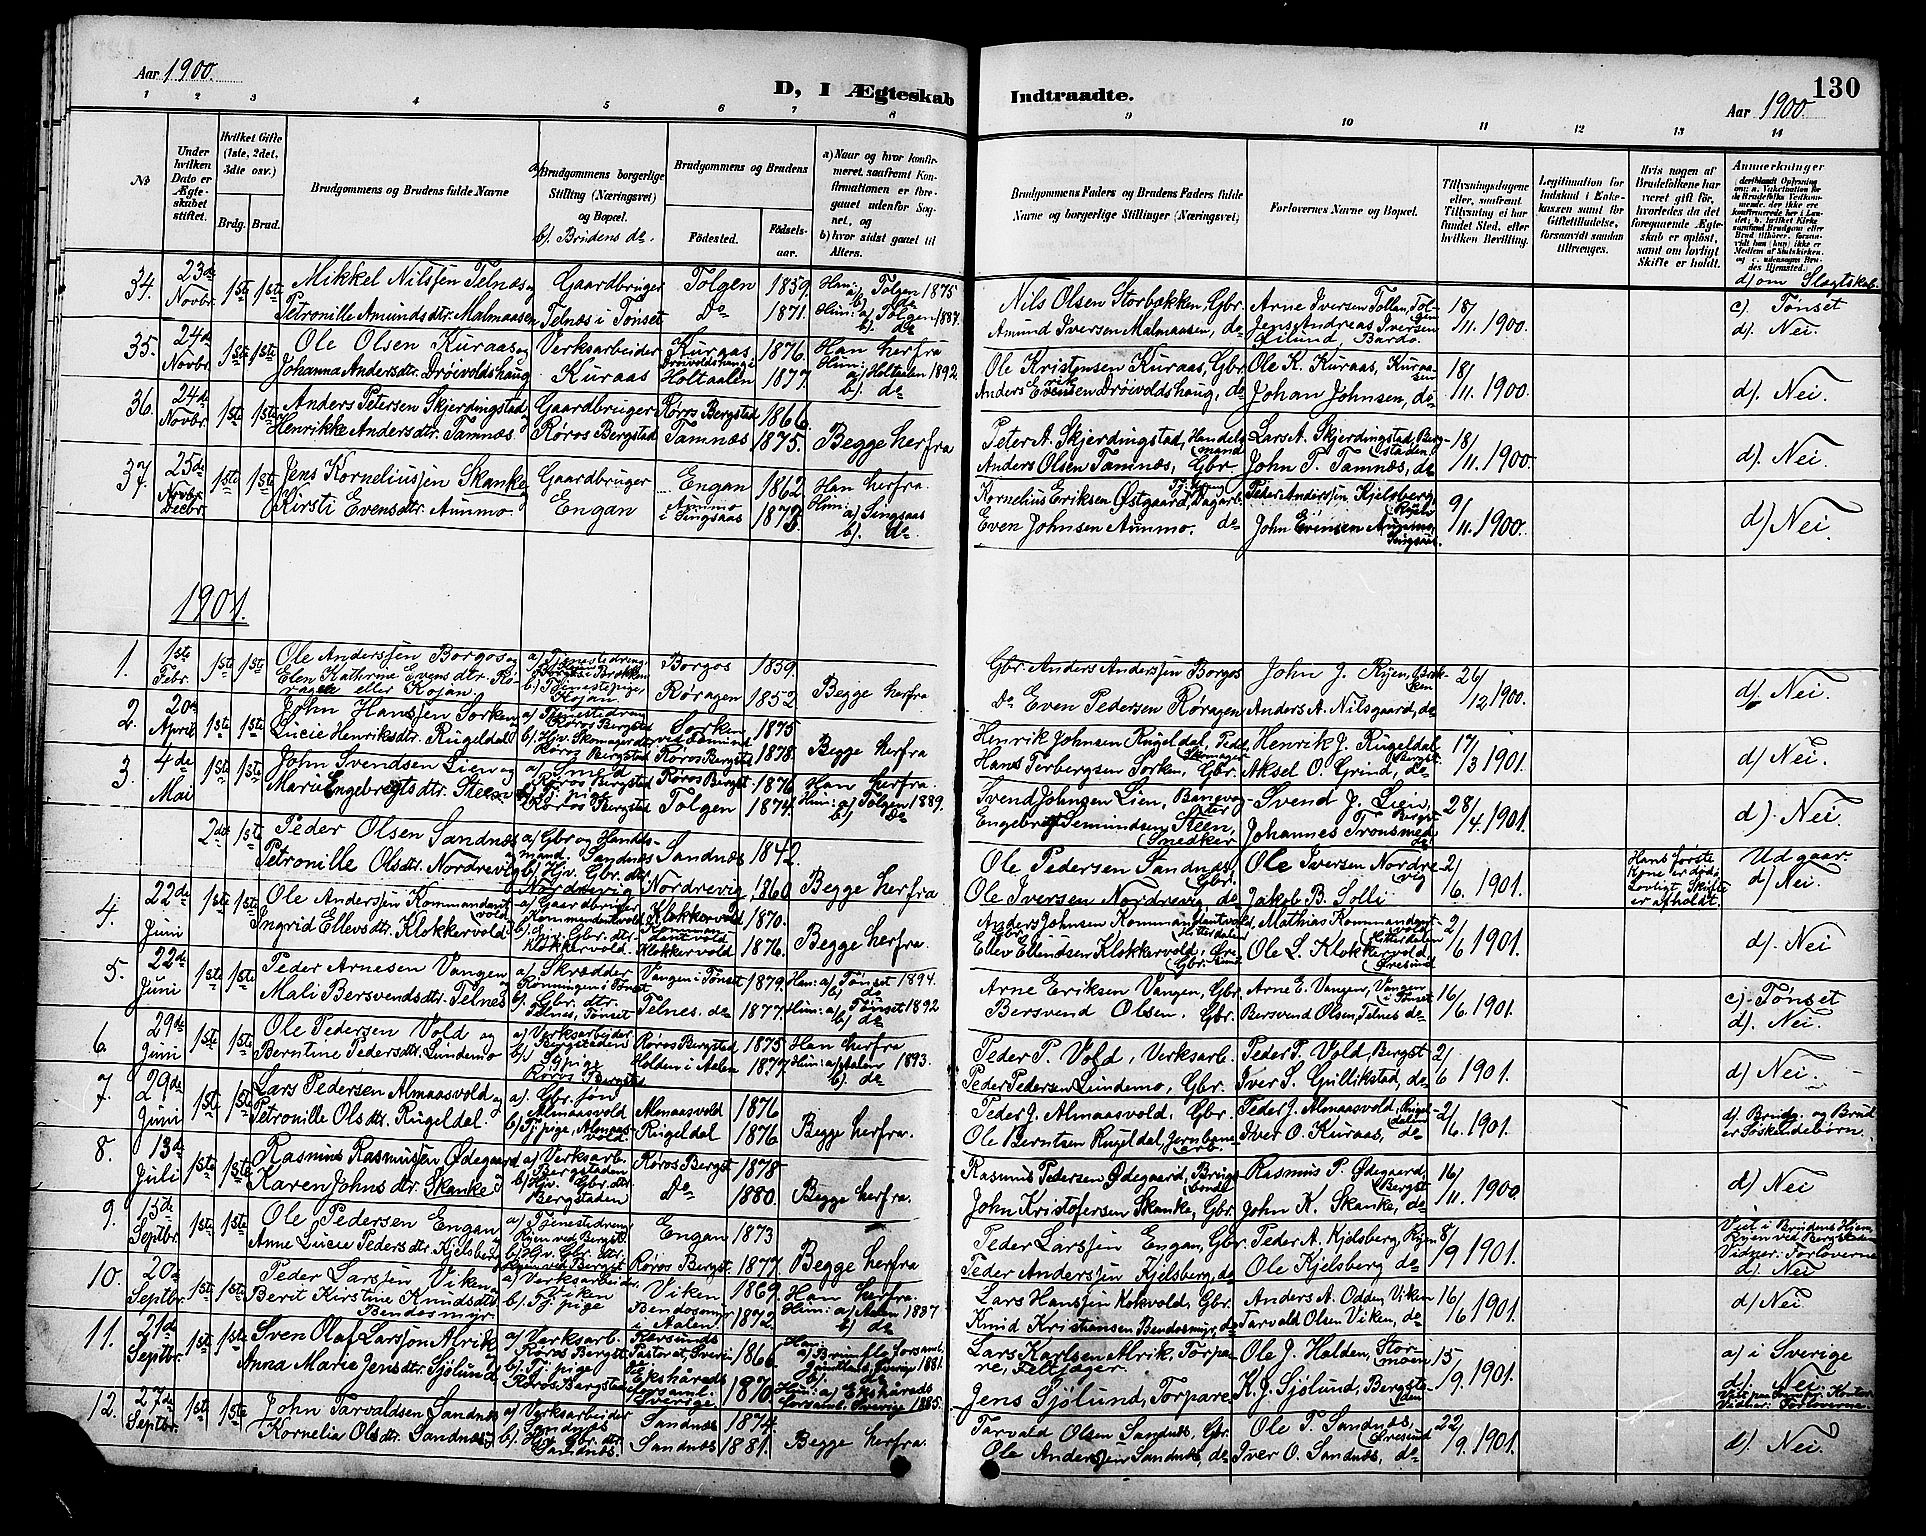 Aar 1900.
D, I Ægteskab Indtraadte.
130
Aar 1900.
1 2 3 4 5 6 7 8 9 10 11 12 13 14
No
Under hvilken Dato er Ægteskabet stiftet.
Hvilket Gifte (1ste, 2det, 3die osv.)
Brdg. Brud.
Brudgommens og Brudens fulde Navne
a) Brudgommens borgerlige Stilling (Næringsvei) og Bopæl.
b). Brudens do.
Brudgommens og Brudens
Fødested. Fødselsaar.
a) Naar og hvor konfirmeret, saafremt Konfirmationen er foregaaet udenfor Sognet, og
b) hvor sidst gaaet til Alters.
Brudgommens Faders og Brudens Faders fulde Navne og borgerlige Stillinger (Næringsvei)
Forlovernes Navne og Bopæl.
Tillysningsdagene eller, saafremt Tillysning ei har fundet Sted, efter hvilken Bevilling.
Legitimation for Indskud i Enkekassen samt for Giftetilladelse, forsaavidt saadan tiltrænges.
Hvis nogen af Brudefolkene har været gift før, hvorledes da det foregaaende Ægteskab er opløst, samt om lovligt Skifte er holdt.
Anmærkninger
d) om Slægtskab.
34. 23de Novbr. 1ste 1ste Mikkel Nilssen Telnes og Gaardbruger Tolgen 1859. Han: a) Tolgen 1875 b) do Nils Olsen Storbækken, Gbr. Arne Iversen Tollan, Tolgen 18/11. 1900. c) Tønset
Petronille Amundsdtr. Malmaasen Telnes i Tønset Do 1871. Hun: a) Tolgen 1887. b). do Amund Iversen Malmaasen, do Jens Andreas Iversen Lilund, Bardo d). Nei.
35. 24de Novbr. 1ste 1ste Ole Olsen Kuraas og Verksarbeider Kuraas 1876. Han herfra Ole Kristensen Kuraas, Gbr. Ole K. Kuraas, Kuraasen 18/11. 1900. d). Nei.
Johanna Andersdtr. Drøivoldshaug Kuraas Drøivoldshaug i Holtaalen 1877. Hun: a) Holtaalen 1892 b). do Anders Evensen Drøivoldshaug, do Johan Johnsen, do
36. 24de Novbr. 1ste 1ste Anders Petersen Skjerdingstad, Gaardbruger Røros Bergstad 1866. Peter A. Skjerdingstad, Handelsmand Lars A. Skjerdingstad, Bergstaden 18/11. 1900. d). Nei.
Henrikke Andersdtr. Tamnæs. Røros Bergstad Tamnæs 1875. Begge herfra Anders Olsen Tamnæs, Gbr. John T. Tamnæs, do
37. 25de Novbr. Decbr. 1ste 1ste Jens Korneliussen Skanke Gaardbruger Engan 1862 Han herfra. Kornelius Eriksen Østgaard, Dagarb. Peder Anderssen Kjelsberg 9/11. 1900. d) Nei.
Kirsti Evensdtr. Aunmo. Engan Aunmo i Singsaas 1873. Hun: a) Singsaas b). do Even Johnsen Aunmo. do John Evensen Aunmo, Singsaas.
1901.
1. 1ste Febr. 1ste 1ste Ole Anderssen Borgos og a) Tjenestedreng, Borgos i Brekken Borgos 1859. Gbr. Anders Anderssen Borgos John J. Ryen, Brekken 26/12 1900. d) Nei.
Elen Kathrine Evensdtr. Røragen eller Kojan. b) Tjenestepige, Kojan Røragen 1852 Begge herfra. Do Even Pedersen Røragen Anders A. Nilsgaard, do
2. 20de April 1ste 1ste John Hanssen Sorken, a) Tjenestedreng Røros Bergstad Sorken ved Fæmund 1875 Henrik Johnsen Rugeldal, Skomager Henrik J. Rugeldal Bergst. 17/3 1901. d) Nei.
Lucie Henriksdtr. Rugeldal b) Hjv. Skomagerdtr. Røros Bergstad Røros Bergst. 1878. Begge herfra Hans Torbergsen Sorken, Gbr. Aksel O. Grind, do
3. 4de Mai 1ste 1ste John Svendsen Lien og a) Smed Røros Bergstad Røros Bergst. 1876 Han herfra Svend Johnsen Lien, Banevogter Svend J. Lien, Bergst. 28/4. 1901. d). Nei
Marie Engebregtsdtr. Steen b) Tj. pige Røros Bergstad Tolgen 1874. Hun: a) Tolgen 1889. b) do Engebregt Semundsen Steen, Snedker Johannes Tronsmed do
2det 1ste Peder Olsen Sandnæs og a) Gbr og Handelsmand, Sandnæs Sandnæs 1842. Ole Pedersen Sandnæs, Gbr. Ole Iversen Nordrevig 2/6. 1901. Hans første Kone er død. Lovligt Skifte er afholdt. Udgaar.
Petronille Olsdtr. Nordrevig b) Hjv. Gbr. dtr. Nordrevig Nordrevig 1860 Begge herfra Ole Iversen Nordrevig, do Jakob B. Solli d) Nei.
4. 22de Juni 1ste 1ste Ole Anderssen Kommandantvold a) Gaardbruger Kommandantvold Kommandantvold 1870. Anders Johnsen Kommandantvold, Gbr. Hitterdalen Mathias Kommandantvold Hitterdalen 2/6 1901. d). Nei
Ingrid Ellevsdtr. Klokkervold b). Hjv. Gbr. dtr. Klokkervold Klokkervold 1876. Begge herfra. Ellev Ellendsen Klokkervold, Gbr. Øresund Ole L. Klokkervold Øresund
5. 22de Juni 1ste 1ste Peder Arnesen Vangen og a) Skrædder Ronningen i Tønset Vangen i Tønset 1879. Han: a) Tønset 1894. b) do Arne Eriksen Vangen, Gbr. Arne E. Vangen, Vangen i Tønset 16/6. 1901. c) Tønset
Mali Bersvendsdtr. Telnes b). Gbr. dtr. Telnes, Tønset Telnes, do 1877. Hun: a) Tønset 1892 b) do Bersvend Olsen, Gbr. Bersvend Olsen, Telnes do d). Nei.
6. 29de Juni 1ste 1ste Ole Pedersen Vold og a) Verksarbeider Bergstaden Røros Bergstad 1875 Han herfra Peder P. Vold, Verksarb. Peder P. Vold, Bergst 2/6 1901. d) Nei.
Berntine Pedersdtr. Lundemo b) Tj. pige Røros Bergstad Holden i Aalen 1877. Hun: a) Aalen 1893. b). do Peder Pedersen Lundemo, Gbr. Iver S. Gullikstad, do
7. 29de Juni 1ste 1ste Lars Pedersen Almaasvold og a). Gbr. søn Almaasvold Almaasvold 1876 Peder J. Almaasvold, Gbr. Peder J. Almaasvold, Rugeldalen 2/6. 1901. d) Brudg. og Brud er Søskendebørn.
Petronille Olsdtr. Rugeldal. b) Tj. pige, Almaasvold. Rugeldal 1876 Begge herfra. Ole Berntsen Rugeldal, Jernbanearb. Iver O. Kuraas, do
8. 13de Juli 1ste 1ste Rasmus Rasmussen Ødegaard a) Verksarb. Bergstaden Røros Bergst 1878 Rasmus Pedersen Ødegaard, Brugs Rasmus P. Ødegaard, Bergst 16/11. 1900. d) Nei
Karen Johnsdtr. Skanke b) Hjv. Gbr. dtr. Bergstaden Do 1880. Begge herfra. John Kristofersen Skanke, Gbr. John K. Skanke, do
9. 15de Septbr. 1ste 1ste Ole Pedersen Engan a) Tjenestedreng Ryen ved Bergst. Engan 1873 Peder Larssen Engan, Gbr. Peder A. Kjelsberg Ryen 8/9 1901. Viet i Brudens Hjem, Ryen ved Bergstaden Vidner: Forloverne
Anne Lucie Pedersdtr. Kjelsberg b) Hjv. Gbr. dtr. Ryen ved Bergst Røros Bergst. 1877. Begge herfra Peder Anderssen Kjelsberg, do Ole Kjelsberg do d). Nei
10. 20de Septbr. 1ste 1ste Peder Larssen Viken a) Verksarbeider Viken Viken 1869. Han herfra. Lars Hanssen Kokvold, Gbr. Anders A. Odden, Viken 16/6 1901. d) Nei.
Berit Kirstine Knudsdtr. Bendosmyr. b) Tj. pige Bendosmyr i Aalen 1872. Hun: a) Aalen 1887 b) do Knud Kristiansen Bendosmyr, do Tarvald Olsen Viken, do
11. 21de Septbr. 1ste 1ste Sven Olaf Larsson Alrik a) Verksarb. Røros Bergst. Sverige 1866. Han: a) Brunflo Forsaml. Sverige 1881. b). do Lars Karlsen Alrik, Torpare, Feltjäger Ole J. Holden, Stormoen 15/9. 1901. a) i Sverige
Anna Marie Jensdtr. Sjölund, b) Tj. pige Røros Bergstad Ekshärads Forsaml. Sverige 1870. Hun: a) Ekshärads Forsaml. Sverige 1885. Jens Sjölund, Torpare K. J. Sjölund, Bergstaden d). Nei Vidner: Forloverne.
12. 27de Septbr. 1ste 1ste John Tarvaldsen Sandnæs a) Verksarbeider Sandnæs Sandnæs 1874. Tarvald Olsen Sandnæs, Gbr. Ole P. Sandnæs, Øresund 22/9. 1901. d). Nei.
Kornelia Olsdtr. Sandnæs b) Hjv. Gbr. dtr. Sandnæs. Sandnæs 1881. Begge herfra. Ole Anderssen Sandnæs, do Iver O. Sandnæs, do